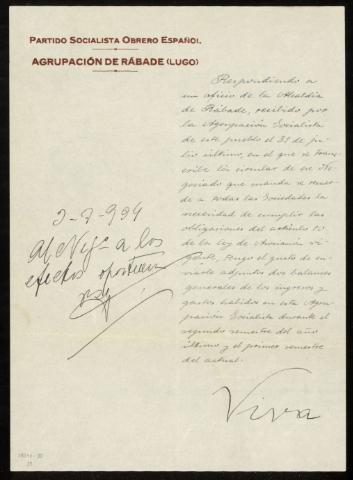 PARTIDO SOCIALISTA OBRERO ESPAÑOL.
AGRUPACIÓN DE RÁBADE (LUGO)
Respondiendo a
un oficio de la Alcaldía
de Rábade, recibido por
la Agrupación Socialista
de este pueblo el 31 de ju-
lio último, en el que se trans-
cribe la circular de ese Ne-
gociado que manda se recuer-
de a todas las Sociedades la
necesidad de cumplir las
obligaciones del artículo 10
de la ley de Asociación vi-
gente, tengo el gusto de en-
viarle adjuntos dos balances
generales de los ingresos y
gastos habidos en esta Agru-
pación Socialista durante el
segundo semestre del año
último y el primer semestre
del actual.
Al a los
efectos
Viva